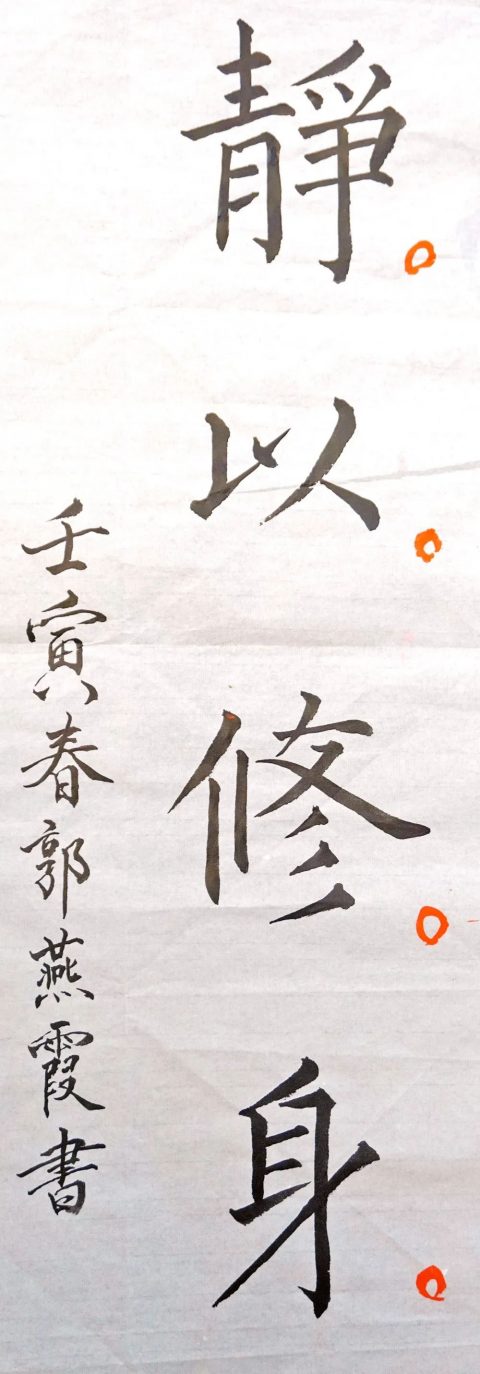 靜以修身
壬寅春郭燕霞書